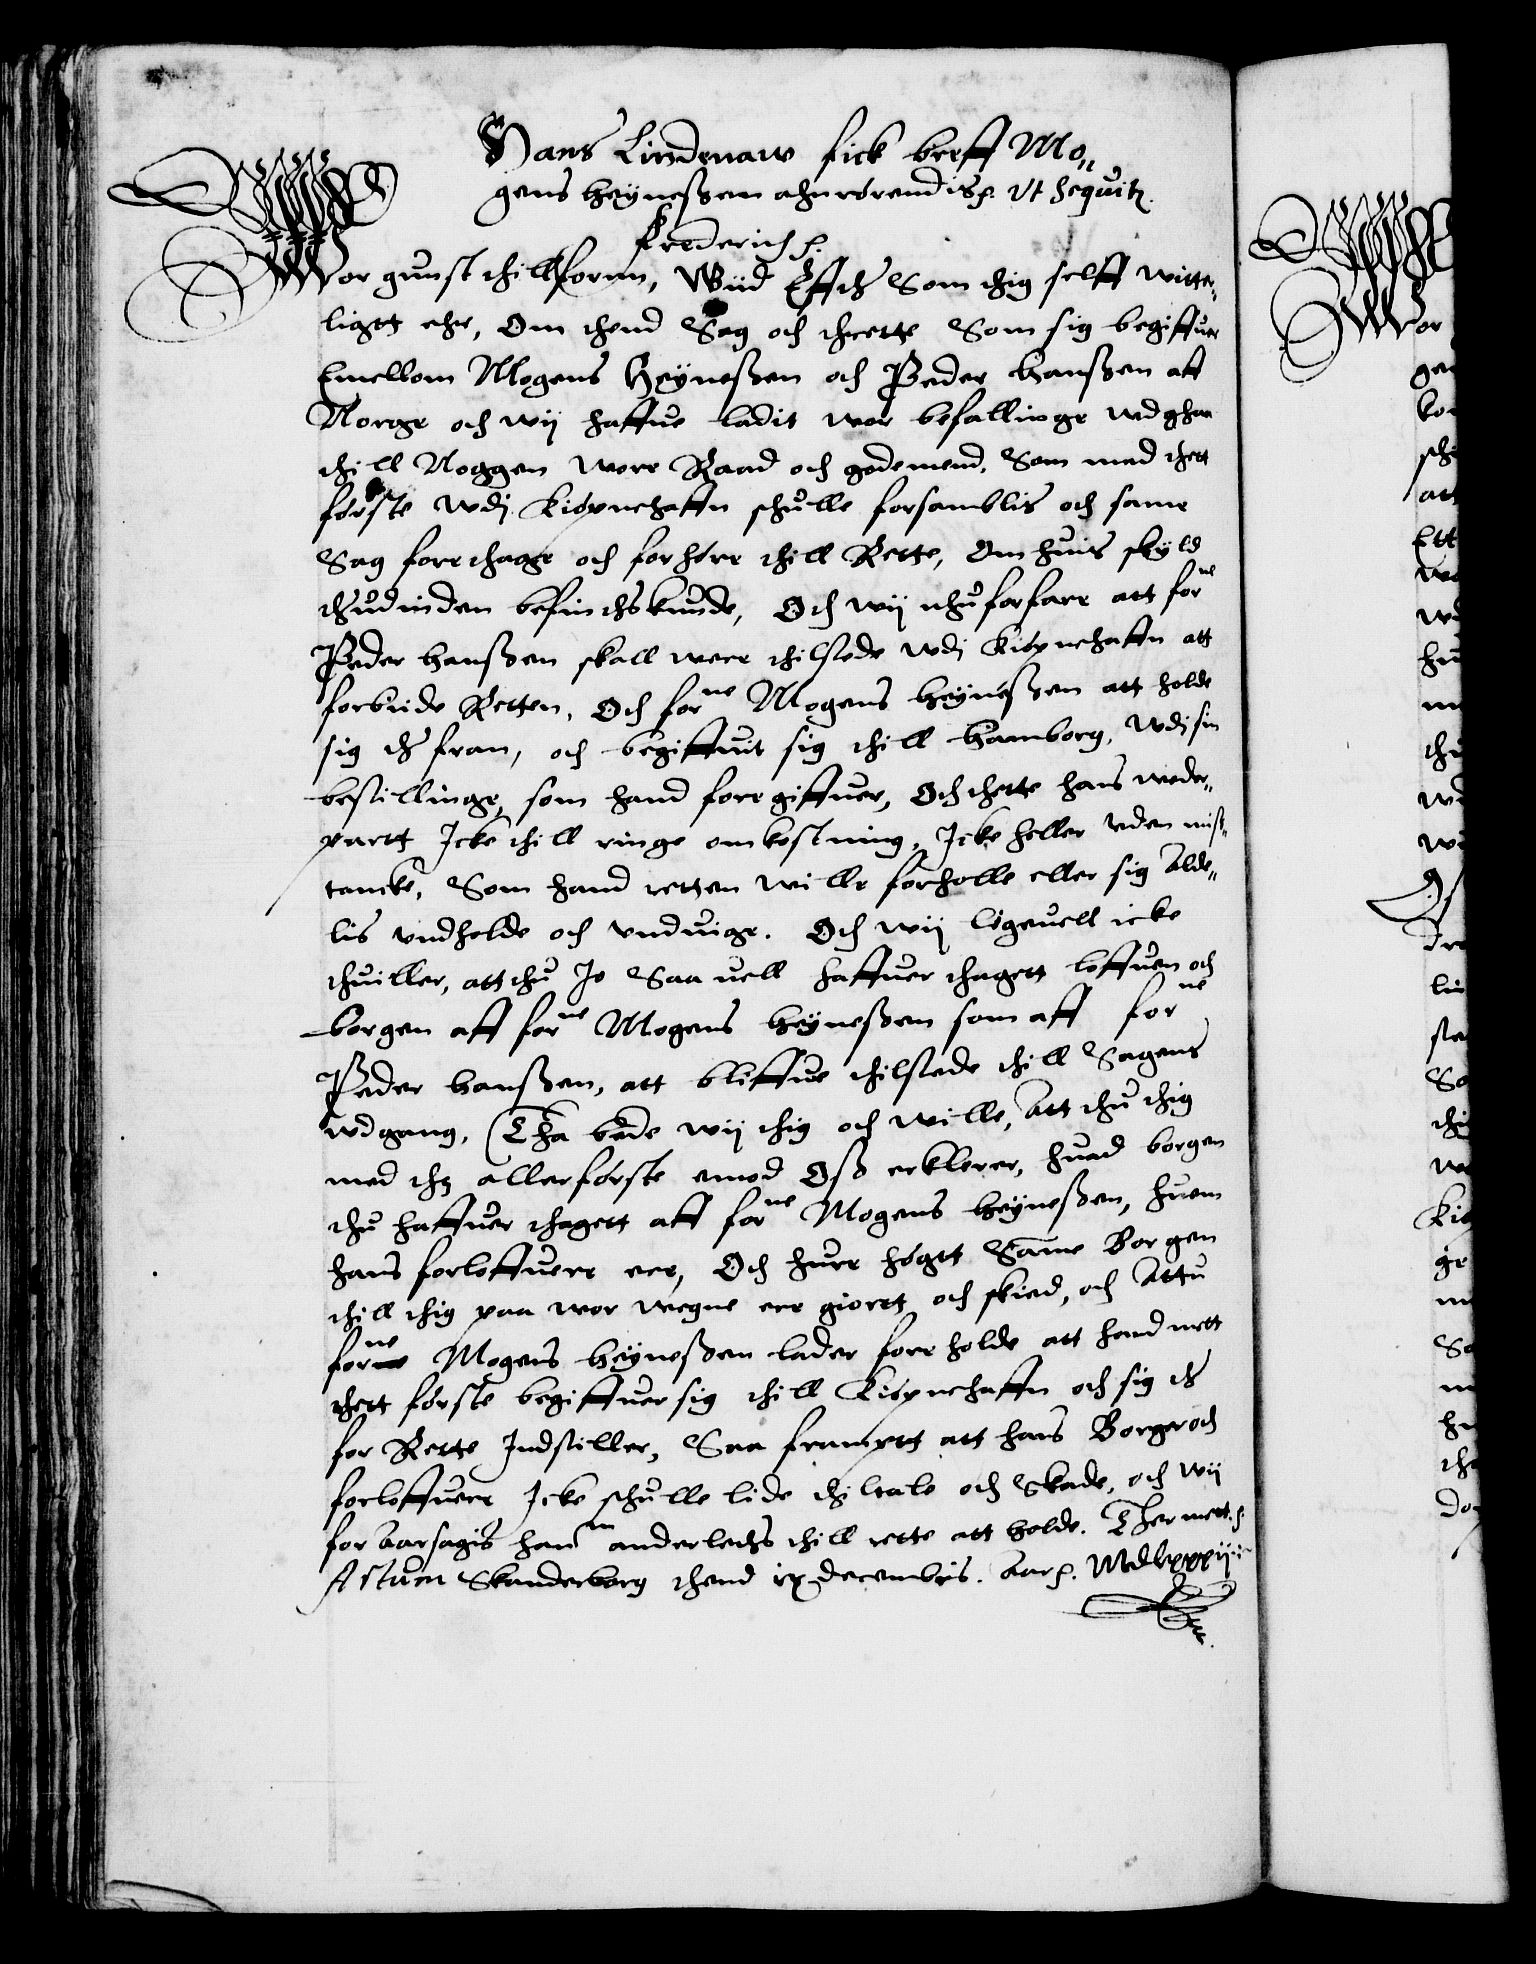 Hans Lindenaw fick breff Mo-
gens Heÿneßen ahnrørendis. Vt sequitr.
Frederich
Wor gunst thillforn, Wiid Effther Som thig selff witte-
ligtt ehr, Om thend Sag och thrette Som sig begiffuer
Emellom Mogens Heÿneßen och Peder Hanßen aff
Norge och wij haffue ladit wor befallinge wdghaa
thill Noggen wore Raad och godemend, Som med thett
første wdj Kiøpnehaffn schulle forsamblis och same
Sag fore thage och forhøre thill Rette, Om huis skÿld
thudinden befindes kunde, Och wij nhu forfare att forne
Peder Hanßen skall were thilstede wdj Kiøpnehaffn att
forbiide Retten, Och forne Mogens Heÿneßen att holde
sig ther fran, och begiffuit sig thill Hamborg, wdj sin
bestillinge, som hand fore giffuer, Och thette hans weder-
partt Icke thill ringe omkostning, Icke heller vden miß-
tancke, Som hand retten wille forholle eller sig Alde-
lis vndholde och vnduige. Och wij ligeuell icke
thuiller, att thu Io Saa uell haffuer thagett loffuen och
borgen aff forne Mogens Heÿneßen som aff forne
Peder Hanßen, att bliffue thilstede thill Sagens
wdgang, Tha bede wij thig och wille, Att thu thig
med thz allerførste emod Oß erklerer, huad borgen
thu haffuer thagett aff forne Mogens Heÿneßen, huem
hans forloffuere ere, Och hure høgtt Same Borgen
thill thig paa wor wegne ere giortt och skied, och Attu
forne Mogens Heÿneßen lader fore holde att hand mett
thett første begiffuer sig thill Kiøpnehaffn och sig ther
for Rette Indstiller, Saa framptt att hans Borger och
forloffuere Icke schulle lide thiltale och Skade, och wij
for aarsagis hannm anderledes thill rette att holde. Ther mett
Actum Skanderborg thend ix decembris. Aar. Mdlxxxiij